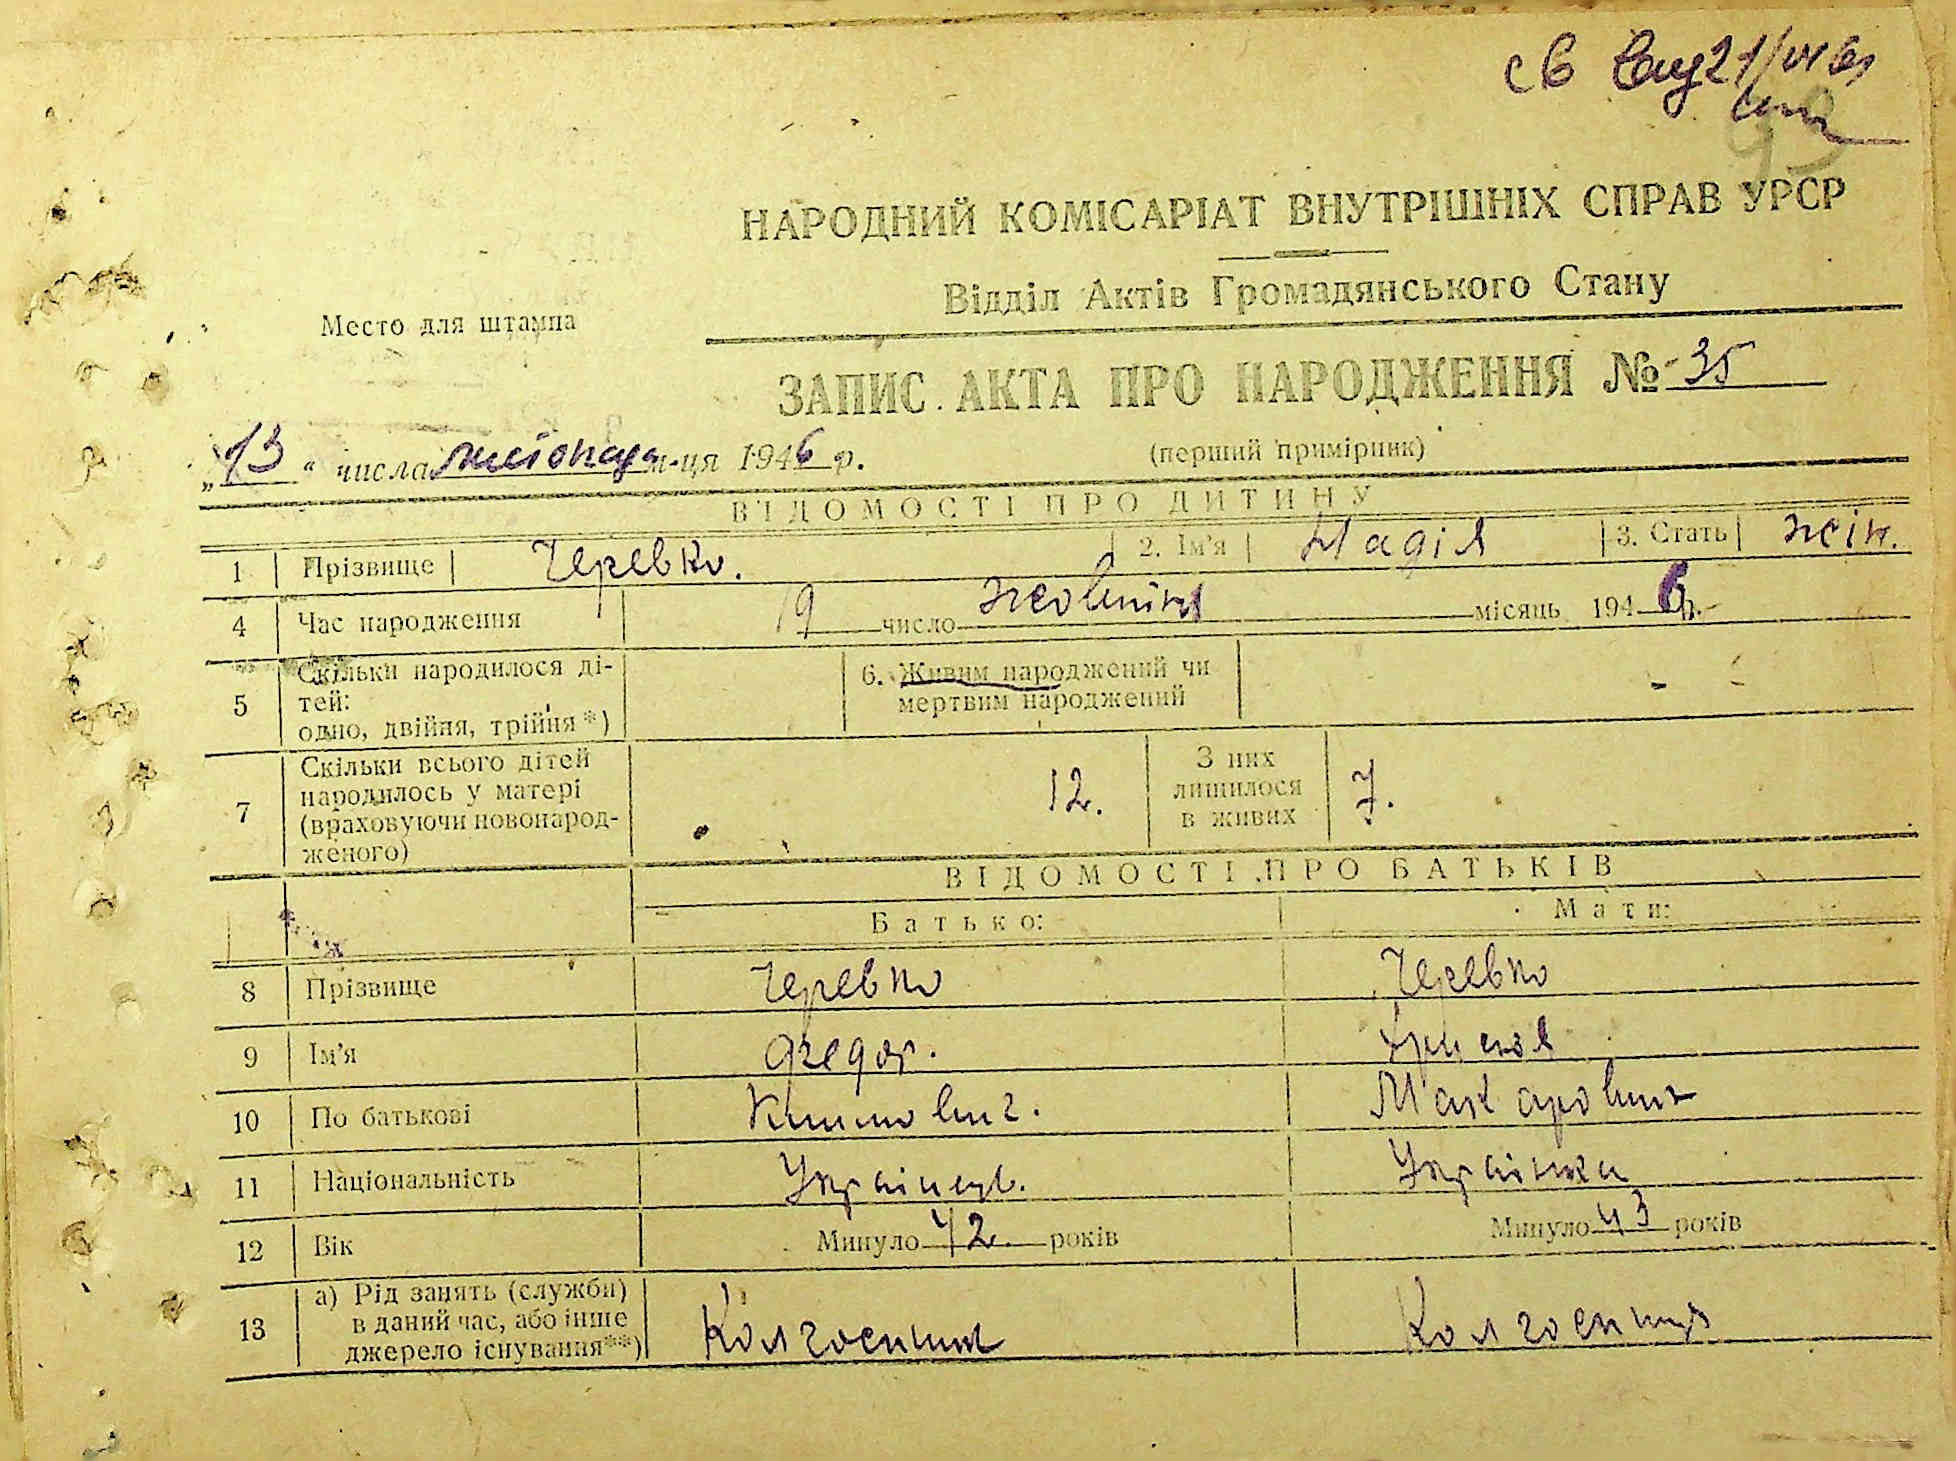 св
НАРОДНИЙ КОМІСАРІАТ ВНУТРІШНІХ СПРАВ УРСР
Відділ Актів Громадянського Стану
Место для штампа
ЗАПИС АКТА ПРО НАРОДЖЕННЯ № 35
(перший примірник)
„13“ числа листопада м-ця 1946 р.
ВІДОМОСТІ ПРО ДИТИНУ
1 Прізвище Черевко. 2. Ім'я Надія 3. Стать жін.
4 Час народження 19 число жовтня місяць 1946 р.
5 Скільки народилося ді-
тей:
одно, двійня, трійня *)
6. Живим народжений чи
мертвим народжений
7 Скільки всього дітей
народилось у матері
(враховуючи новонарод-
женого)
12.
З них
лишилося
в живих
7.
ВІДОМОСТІ ПРО БАТЬКІВ
Батько: Мати:
8 Прізвище Черевко Черевко
9 Ім'я Федор.
10 По батькові Климович. Макаровна
11 Національність Українец. Українка
12 Вік Минуло 42 років Минуло 43 років
13 а) Рід занять (служби)
в даний час, або інше
джерело існування**)
Колгоспник Колгоспниця